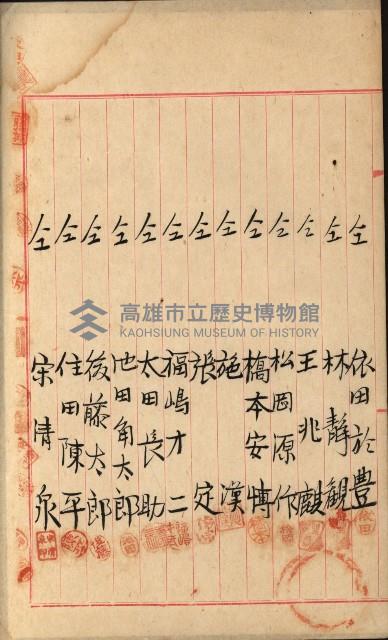 仝 依田於豊
仝 林靜觀
仝 王兆麒
仝 松岡源作
仝 橋本安博
仝 施漢
仝 張定
仝 福嶋才二
仝 太田長助
仝 池田角太郎
仝 後藤太郎
仝 住田陳平
仝 宋清泉
高雄市立歷史博物館
KAOHSIUNG MUSEUM OF HISTORY